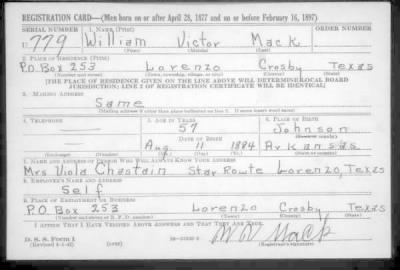 REGISTRATION CARD—(Men born on or after April 28, 1877 and on or before February 16, 1897)
SERIAL NUMBER 1. NAME (Print) ORDER NUMBER
U 779 William Victor Mack
2. PLACE OF RESIDENCE (Print)
P.O. Box 253 Lorenzo Crosby Texas
(Number and street) (Town, township, village, or city) (County) (State)
[THE PLACE OF RESIDENCE GIVEN ON THE LINE ABOVE WILL DETERMINE LOCAL BOARD
JURISDICTION; LINE 2 OF REGISTRATION CERTIFICATE WILL BE IDENTICAL]
3. MAILING ADDRESS
Same
(Mailing address if other than place indicated on line 2. If same insert word same)
4. TELEPHONE 5. AGE IN YEARS 6. PLACE OF BIRTH
— 57 Johnson
DATE OF BIRTH (Town or county)
— Aug. 11 1884 Arkansas
(Exchange) (Number) (Mo.) (Day) (Yr.) (State or country)
7. NAME AND ADDRESS OF PERSON WHO WILL ALWAYS KNOW YOUR ADDRESS
Mrs Viola Chastain Star Route Lorenzo, Texas
8. EMPLOYER'S NAME AND ADDRESS
Self
9. PLACE OF EMPLOYMENT OR BUSINESS
P.O. Box 253 Lorenzo Crosby Texas
(Number and street or R. F. D. number) (Town) (County) (State)
I AFFIRM THAT I HAVE VERIFIED ABOVE ANSWERS AND THAT THEY ARE TRUE.
D. S. S. Form 1
(Revised 4-1-42) (over) Mack
(Registrant's signature)